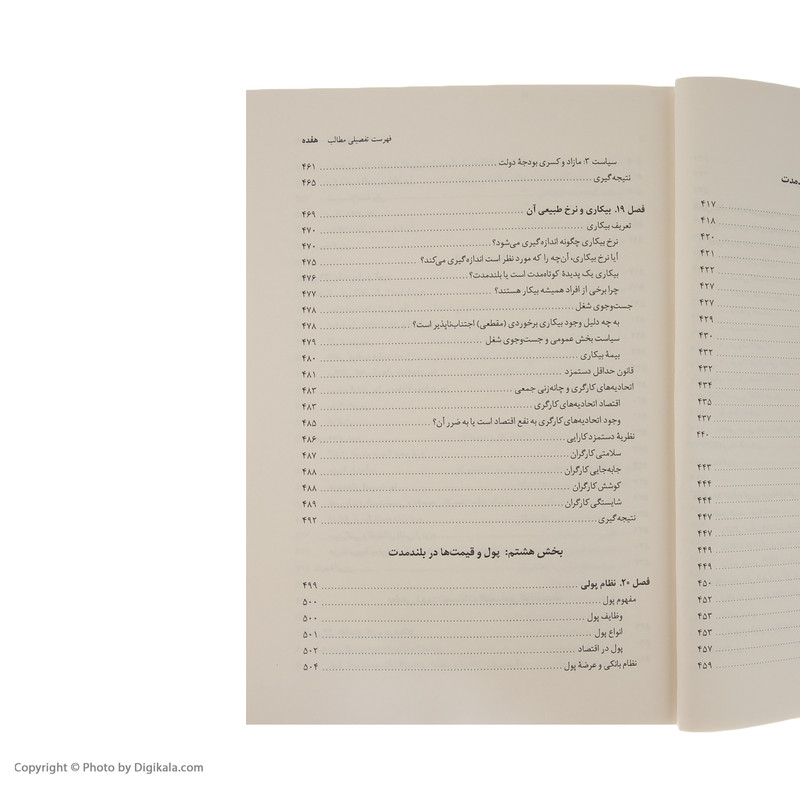 فهرست تفصیلی مطالب هفده
سیاست ۳: مازاد و کسری بودجهٔ دولت ۴۶۱
نتیجه‌گیری ۴۶۵
فصل ۱۹. بیکاری و نرخ طبیعی آن ۴۶۹
تعریف بیکاری ۴۷۰
نرخ بیکاری چگونه اندازه‌گیری می‌شود؟ ۴۷۰
آیا نرخ بیکاری، آن‌چه را که مورد نظر است اندازه‌گیری می‌کند؟ ۴۷۵
بیکاری یک پدیدهٔ کوتاه‌مدت است یا بلندمدت؟ ۴۷۶
چرا برخی از افراد همیشه بیکار هستند؟ ۴۷۷
جست‌وجوی شغل ۴۷۸
به چه دلیل وجود بیکاری برخوردی (مقطعی) اجتناب‌ناپذیر است؟ ۴۷۸
سیاست بخش عمومی و جست‌وجوی شغل ۴۷۹
بیمهٔ بیکاری ۴۸۰
قانون حداقل دستمزد ۴۸۱
اتحادیه‌های کارگری و چانه‌زنی جمعی ۴۸۳
اقتصاد اتحادیه‌های کارگری ۴۸۳
وجود اتحادیه‌های کارگری به نفع اقتصاد است یا به ضرر آن؟ ۴۸۵
نظریهٔ دستمزد کارایی ۴۸۶
سلامتی کارگران ۴۸۷
جابه‌جایی کارگران ۴۸۸
کوشش کارگران ۴۸۸
شایستگی کارگران ۴۸۹
نتیجه‌گیری ۴۹۲
بخش هشتم: پول و قیمت‌ها در بلندمدت
فصل ۲۰. نظام پولی ۴۹۹
مفهوم پول ۵۰۰
وظایف پول ۵۰۰
انواع پول ۵۰۱
پول در اقتصاد ۵۰۲
نظام بانکی و عرضهٔ پول ۵۰۴
۴۱۷
۴۱۸
۴۲۰
۴۲۱
۴۲۲
۴۲۷
۴۲۷
۴۲۹
۴۳۰
۴۳۲
۴۳۲
۴۳۴
۴۳۵
۴۳۷
۴۴۰
۴۴۳
۴۴۴
۴۴۴
۴۴۷
۴۴۷
۴۴۹
۴۴۹
۴۵۰
۴۵۲
۴۵۳
۴۵۳
۴۵۷
۴۵۹
Copyright © Photo by Digikala.com